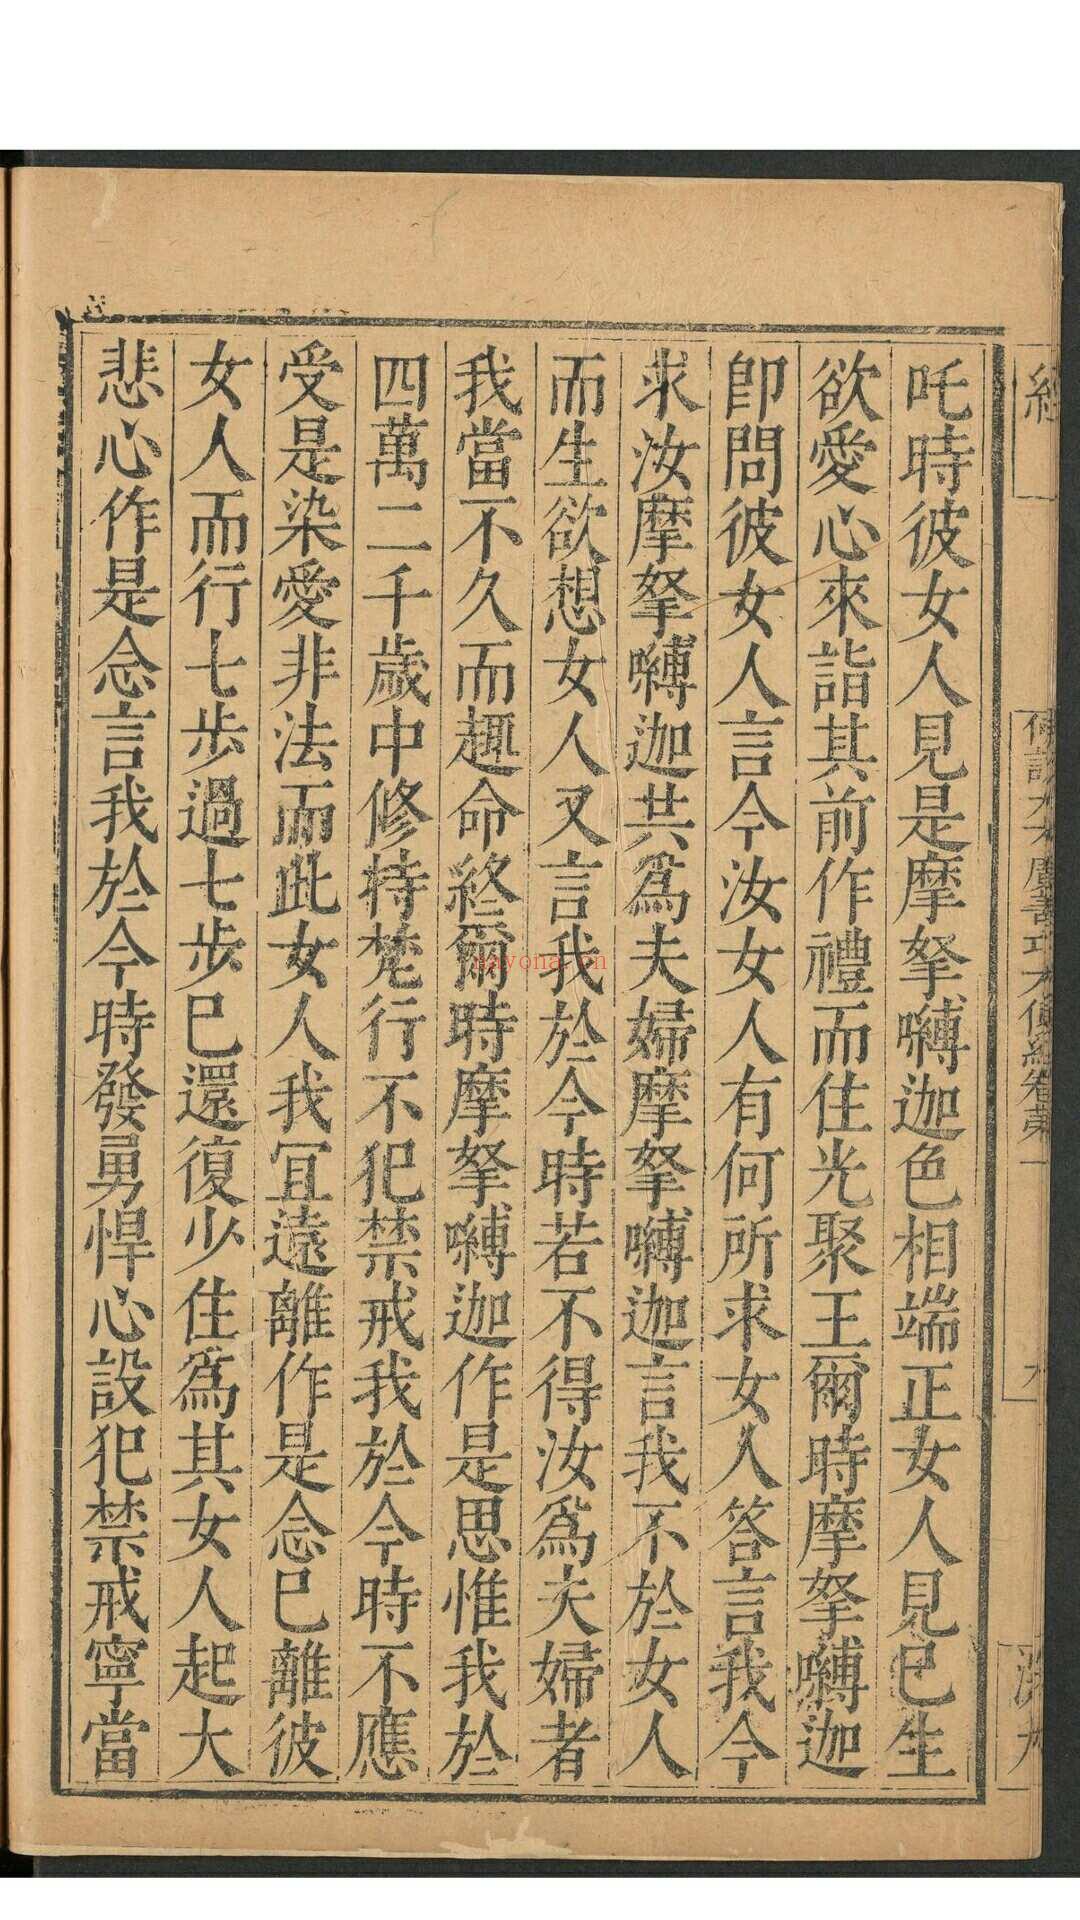 吒時彼女人見是摩拏嚩迦色相端正女人見已生
欲愛心來詣其前作禮而住光聚王爾時摩拏嚩迦
即問彼女人言今汝女人有何所求女人答言我今
求汝摩拏嚩迦共爲夫婦摩拏嚩迦言我不於女人
而生欲想女人又言我於今時若不得汝爲夫婦者
我當不久而趣命終爾時摩拏嚩迦作是思惟我於
四萬二千歲中修持梵行不犯禁戒我於今時不應
受是染愛非法而此女人我宜遠離作是念已離彼
女人而行七步過七步已還復少住爲其女人起大
悲心作是念言我於今時發勇悍心設犯禁戒寧當
經
卷第一